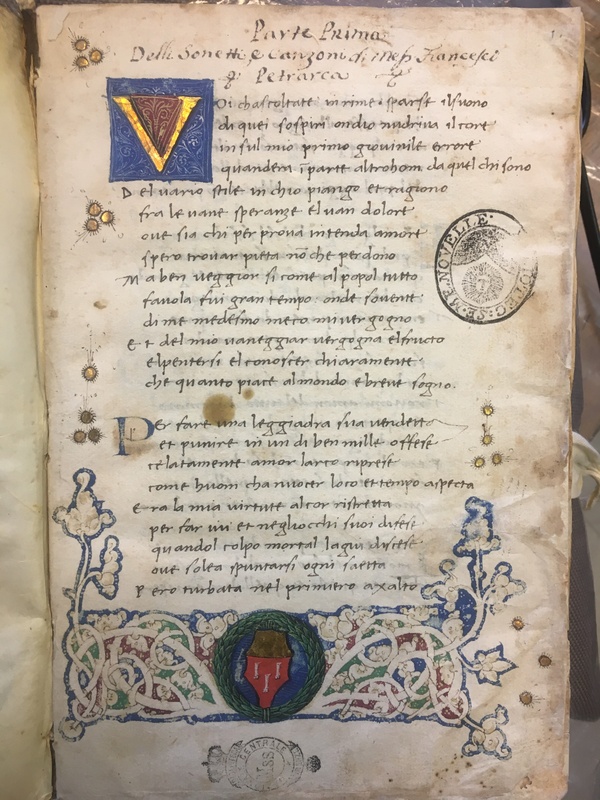 Parte Prima
Delli Sonetti, e Canzoni di Mess Francesci
Petrarca
VOi chascoltate in rime sparse il suono
di quei sospiri ondio nudriva il core
in sul mio primo giovinile errore
quandera i parte altrohom da quel chi sono
Del uario stile in chio piango et ragiono
fra le uane speranze el uan dolore
oue sia chi per prova intenda amore
spero trovar pieta nō che perdono
Ma ben veggior si come al popol tutto
favola fui gran tempo onde sovente
di me medesmo meco mi vergogno
Et del mio vaneggiar vergogna el fructo
el pentersi el conoscer chiaramente
che quanto piace al mondo e breve sogno.
Per fare una leggiadra sua vendetta
et punire in un di ben mille offese
celatamente amor larco riprese
come huom cha nuocer loco et tempo aspecta
Era la mia virtute al cor ristretta
per far ivi et negliocchi suoi difese
quandol colpo mortal lagiu discese
oue solea spuntarsi ogni saetta
Pero turbata nel primiero axalto
NOVELLE
CENTRALE